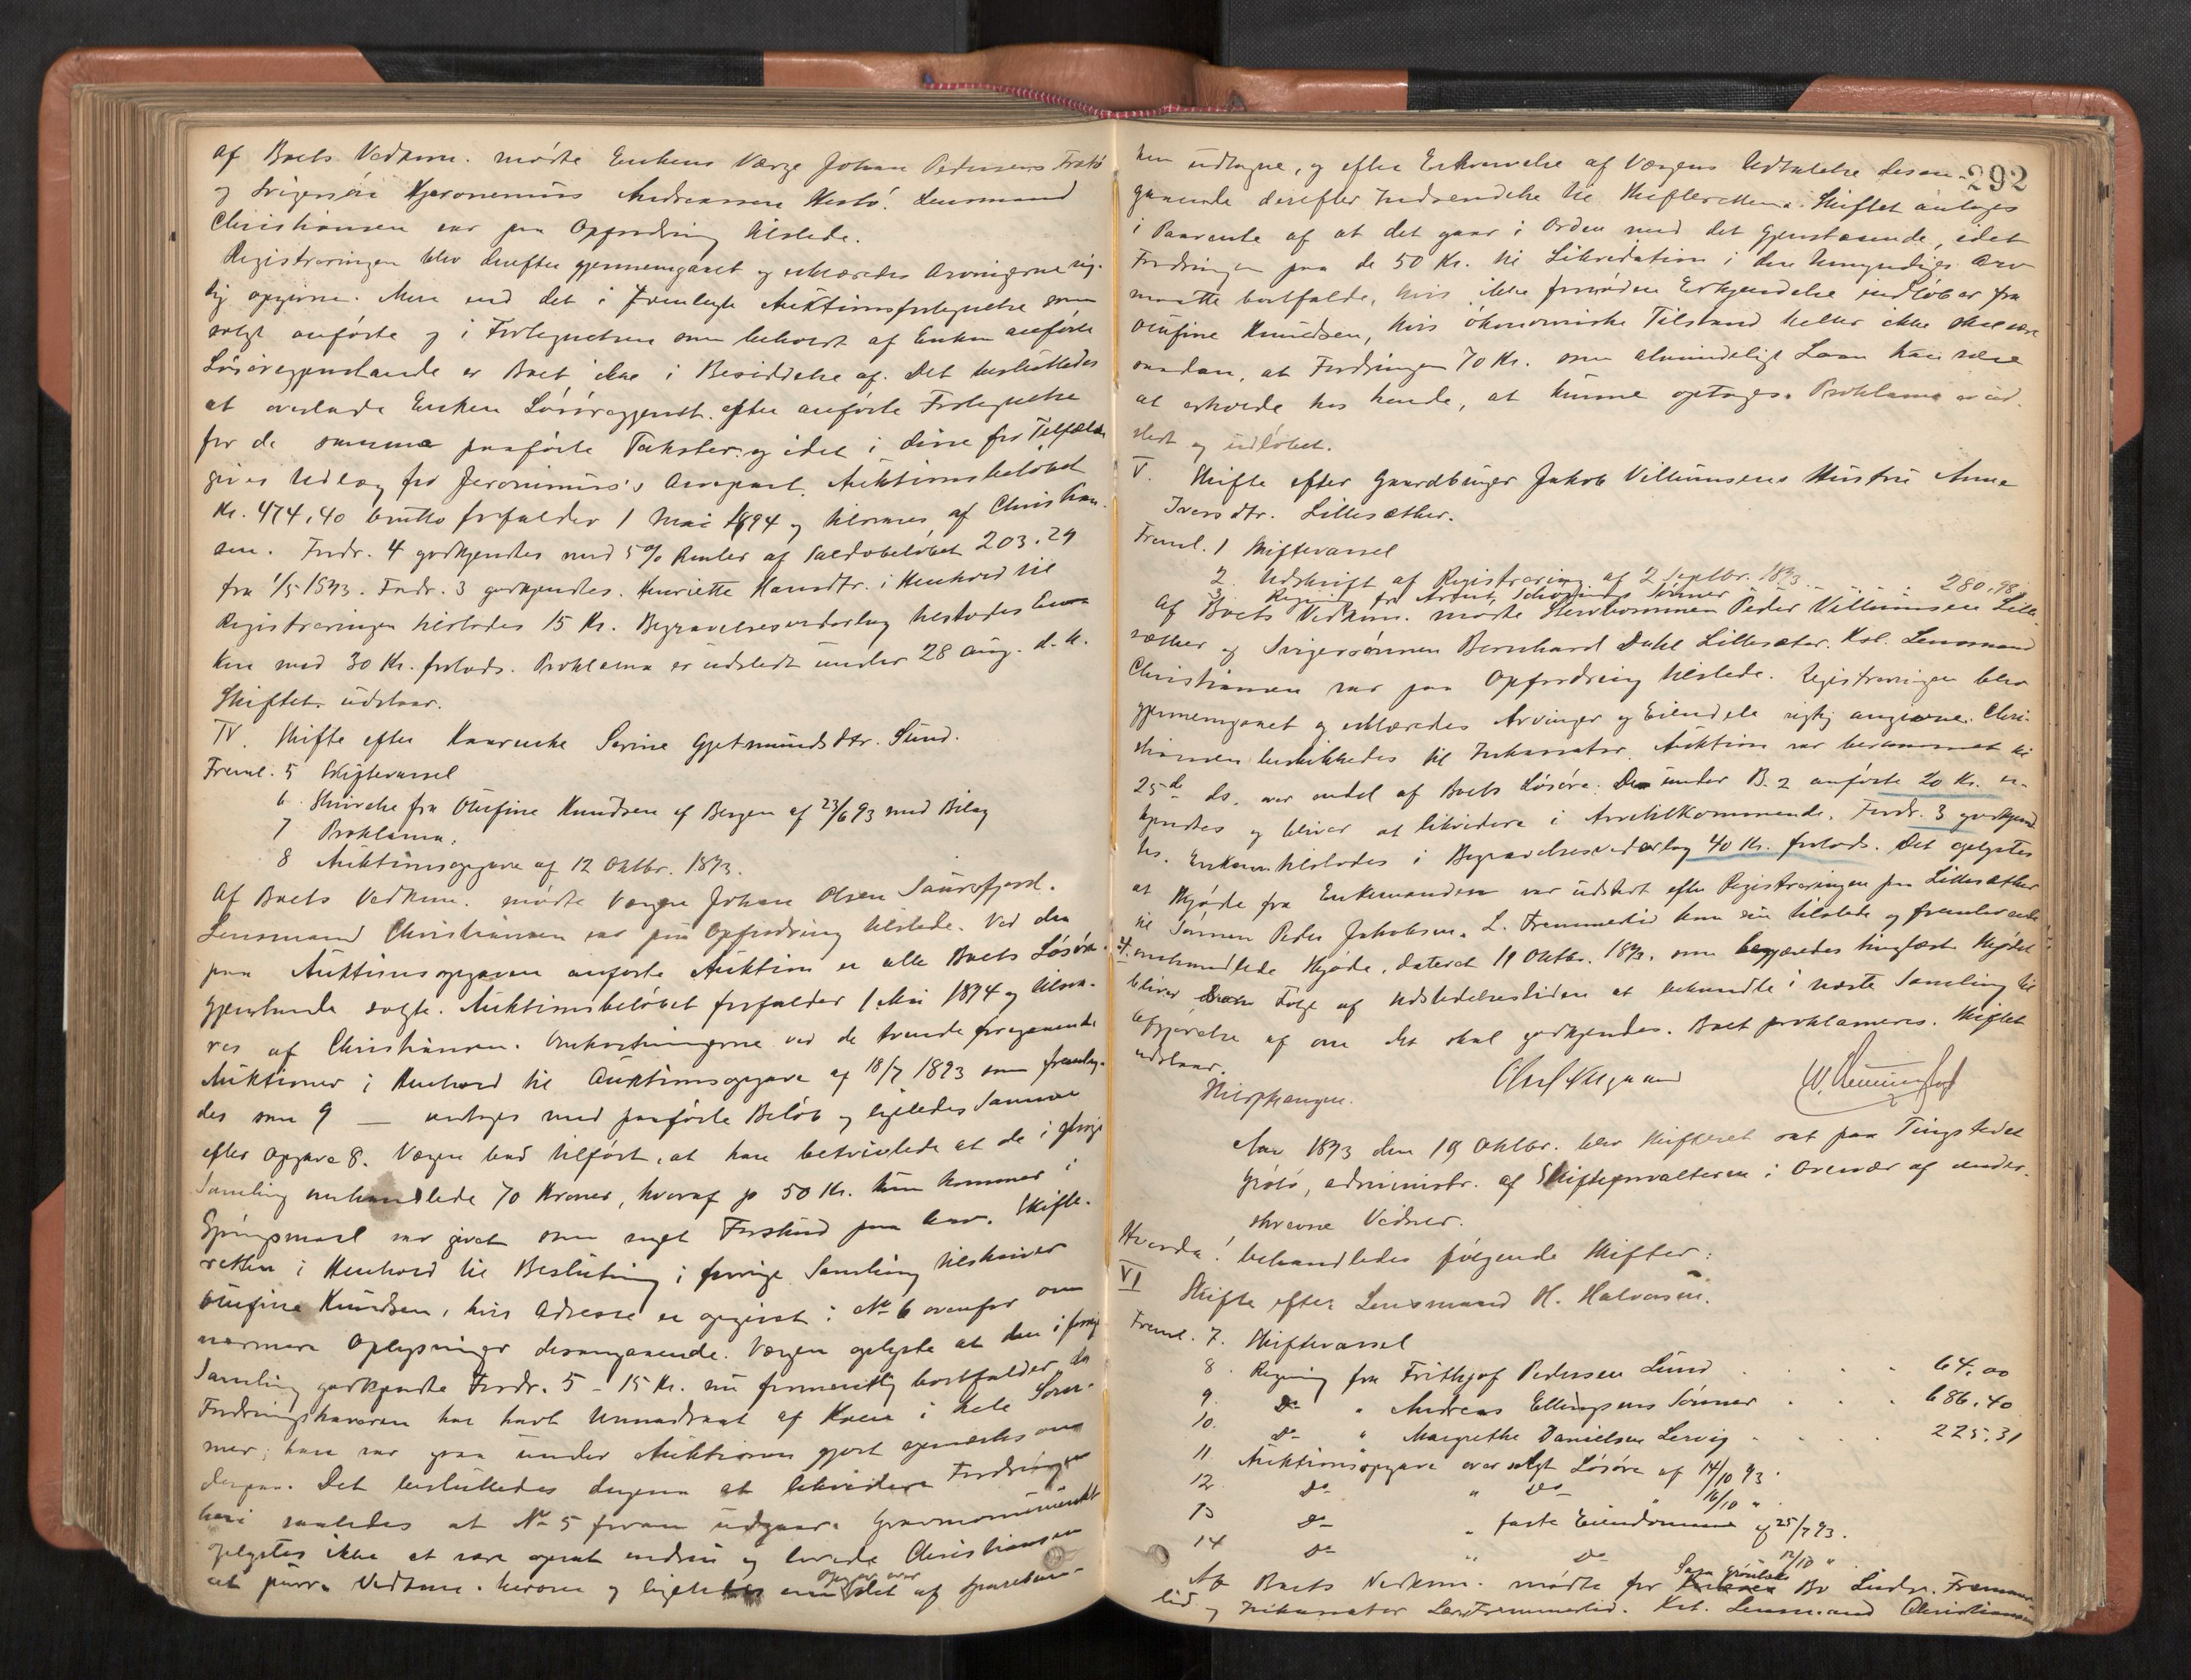 af Boets Vedkom. mødte Enkens Værge Johan Pedersens
og Svigersøn Hjeronemus Andreassen Lensmand
Christiansen var paa Opfordring tilstede.
Registreringen blev derefter gjennemgaaet og erklæredes Arvingerne rig-
tig opgivne. Mere end det i fremlagte Auktionsfortegnelse som
solgt anførte og i Fortegnelsen som beholdt af Enken anførte
Løsøregjenstande er Boet ikke i Besiddelse af. Det besluttedes
at overlade Enken Løsøregjenst. efter anførte Fortegnelse
for de samme paaførte Takster og idet i disse for Tilfælde
gives Udlæg for Jeronimus's Arvepart. Auktionsbeløbet
Kr. 474,40 brutto forfalder 1 Mai 1894 og tilsvares af Christian-
sen. Fordr. 4 godkjendtes med 5% Renter af Saldobeløbet 203.29
fra 1/5 1893. Fordr. 3 godkjendtes. Henriette Hansdtr. i Henhold til
Registreringen tilstodes 15 Kr. Begravelsesvederlag tilstodes
ken med 30 Kr. forlods. Proklama er udstedt under 28 Aug. d. A.
Skiftet udstaar.
IV. Skifte efter Kaarenke Serine Gjetmundsdtr. Sund.
Freml. 5 Skiftevarsel
6. Skrivelse fra Olufine Knudsen af Bergen af 23/6 93 med Bilag
7 Proklama.
8 Auktionsopgave af 12 Oktbr. 1893.
Af Boets Vedkom. mødte Værgen Johan Olsen Saursfjord.
Lensmand Christiansen var paa Opfordring tilstede. Ved den
paa Auktionsopgaven anførte Auktion er alle Boets Løsøre-
gjenstande solgte. Auktionsbeløbet forfalder 1 Mai 1894 og tilsva-
res af Christiansen. Omkostningerne ved de tvende foregaaende
Auktioner i Henhold til Auktionsopgave af 18/7 1893 som fremlag-
des som 9 — antages med paaførte Beløb og ligeledes Samme
efter Opgave 8. Værgen bad tilført, at han betvivlede at de i forrige
Samling omhandlede 70 Kroner, hvoraf jo 50 Kr. kun kommer i
Spørgsmaal var givet som noget Forskud paa Arv. Skifte-
retten i Henhold til Beslutning i forrige Samling tilskriver
Olufine Knudsen, hvis Adresse er opgivet i No 6 ovenfor om
nærmere Oplysninger desangaaende. Værgen oplyste at den i forrige
Samling godkjendte Fordr. 5 - 15 Kr. nu formentlig bortfalder, da
Fordringshaveren har havt Unnadraat af Koen i hele Som-
mer; han var paa under Auktionen gjort opmærksom
derpaa. Det besluttedes dagene at likvidere Fordringen
heri saaledes at No 5 foran udgaar. Gravmonumentet
oplystes ikke at være opsat endnu og lovede Christiansen
at purre Vedkom. herom og ligeledes om Opgave over det af Spareban-
292
ken udtagne, og efter Erkvervelse af Værgens Udtalelse desan-
gaaende derefter Indsendelse til Skifteretten. Skiftet antages
i Paavente af at det gaar i Orden med det Gjenstaaende, idet
Fordringen paa de 50 Kr. til Likvidation i den Umyndiges Arv
maatte bortfalde, hvis ikke fornøden Erkjendelse indløber fra
Olufine Knudsen, hvis økonomiske Tilstand heller ikke skal være
saadan, at Fordringen 70 Kr. som almindeligt Laan kan være
at erholde hos hende, at kunne optages. Proklama er ud-
stedt og udløbet.
V. Skifte efter Gaardbruger Jakob Villumsens Hustru Anne
Iversdtr. Lillesæther.
Freml. 1 Skiftevarsel
2. Udskrift af Registrering af 2 Septbr. 1893
3. Regning fra Arent Schønings Sønner . . . 280,98
Af Boets Vedkom. mødte Stervbomanden Peder Villumsen Lille-
sæther og Svigersønnen Bernhard Dahl Lillesæter. Kst. Lensmand
Christiansen var paa Opfordring tilstede. Registreringen blev
gjennemgaaet og erklæredes Arvinger og Eiendele rigtig angivne. Chri-
stiansen beskikkedes til Inkassator. Auktion var berammet til
25de ds. over endel af Boets Løsøre. De under B. 2 anførte 20 Kr. er-
kjendtes og bliver at likvidere i Arvetilkommende. Fordr. 3 godkjend-
tes. Enkem. tilstodes i Begravelsesvederlag 40 Kr. forlods. Det oplystes
at Skjøde fra Enkemanden var udstedt efter Registreringen paa Lillesæther
til Sønnen Peder Jakobsen. L. Fremmerlid kom nu tilstede og fremleverede
4. omhandlede Skjøde, dateret 19 Oktbr. 1893, som begjæredes tinglæst. Skjødet
bliver som Følge af Udstedelsestiden at behandle i næste Samling til
Afgjørelse af om det skal godkjendes. Boet proklameres. Skiftet
udstaar.
Aar 1893 den 19 Oktbr. blev Skifteret sat paa Tingstedet
Grøtø, administr. af Skifteforvalteren i Overvær af under-
skrevne Vidner.
Hvorda! behandledes følgende Skifter:
VI Skifte efter Lensmand H. Halvorsen.
Freml. 7. Skiftevarsel
8. Regning fra Frithjof Pedersen Lund . . . 64,00
9. Do " Andreas Ellingsens Sønner . . . 686,40
10. Do " Margrethe Danielsen Lervig . . . 225,31
11. Auktionsopgave over solgt Løsøre af 14/10 93.
12. Do " Do " 16/10 ".
13 Do " faste Eiendomme af 25/7 93.
14 Do " Do 12/10 "
Af Boets Vedkom. mødte for Bo Lindr. Fremmer-
lid og Inkassator Lars Fremmerlid. Kst. Lensmand Christiansen